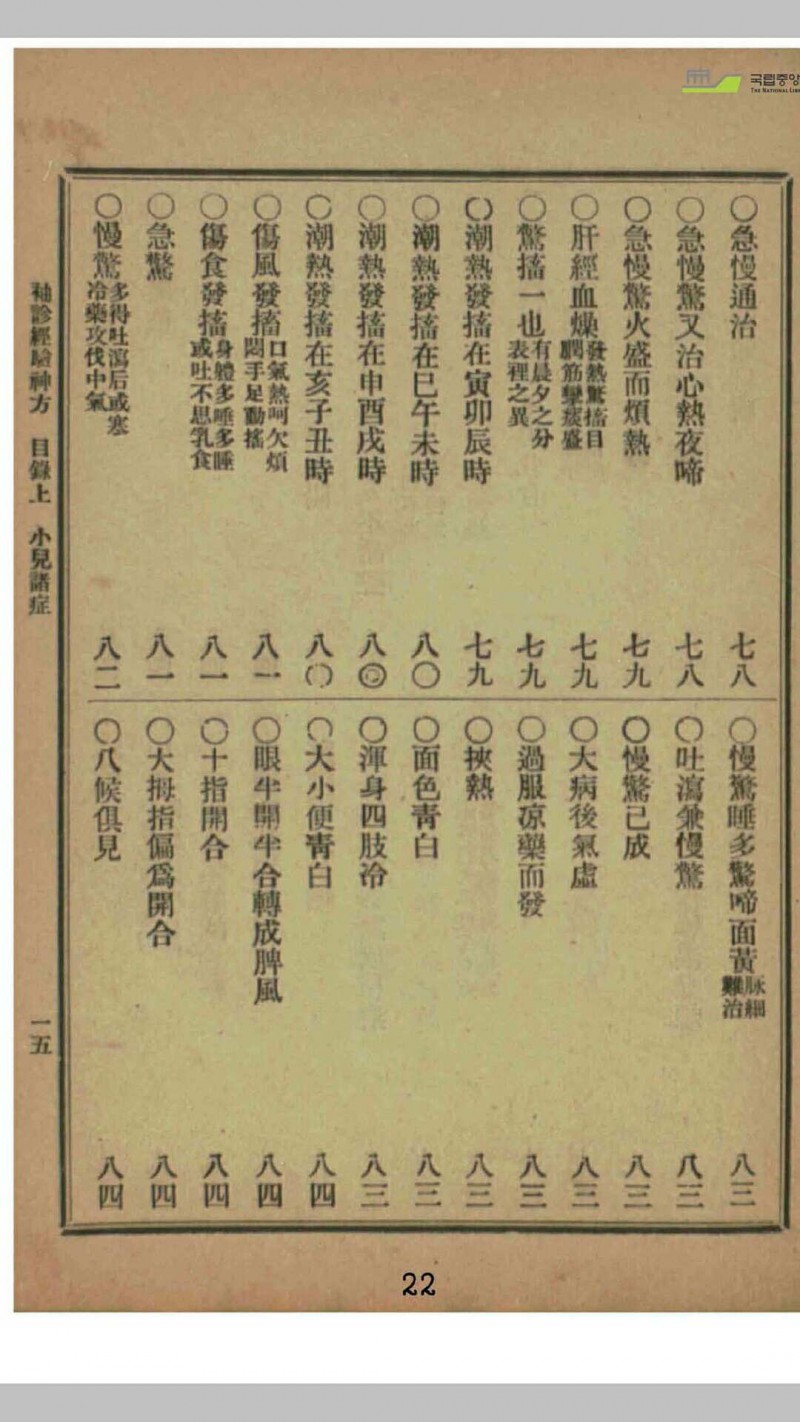 국립중앙
THE NATIONAL LIB
○急慢通治 七八
○急慢驚又治心熱夜啼 七八
○急慢驚火盛而煩熱 七九
○肝經血燥 發熱驚搐目 筋攣痰盛 七九
○驚搐一也 有晨夕之分 表裡之異 七九
○潮熱發搐在寅卯辰時 七九
○潮熱發搐在巳午未時 八〇
○潮熱發搐在申酉戌時 八〇
○潮熱發搐在亥子丑時 八〇
○傷風發搐 口氣熱呵欠煩 悶手足動搖 八一
○傷食發搐 身體多睡多睡 或吐不思乳食 八一
○急驚 八一
○慢驚 多得吐瀉后或寒 冷藥攻伐中氣 八二
○慢驚睡多驚啼面黃 脉細 難治 八三
○吐瀉兼慢驚 八三
○慢驚已成 八三
○大病後氣虛 八三
○過服凉藥而發 八三
○挾熱 八三
○面色靑白 八三
○渾身四肢冷 八三
○大小便靑白 八四
○眼半開半合轉成脾風 八四
○十指開合 八四
○大拇指偏爲開合 八四
○八候俱見 八四
袖診經驗神方 目錄上 小兒諸症 一五
22